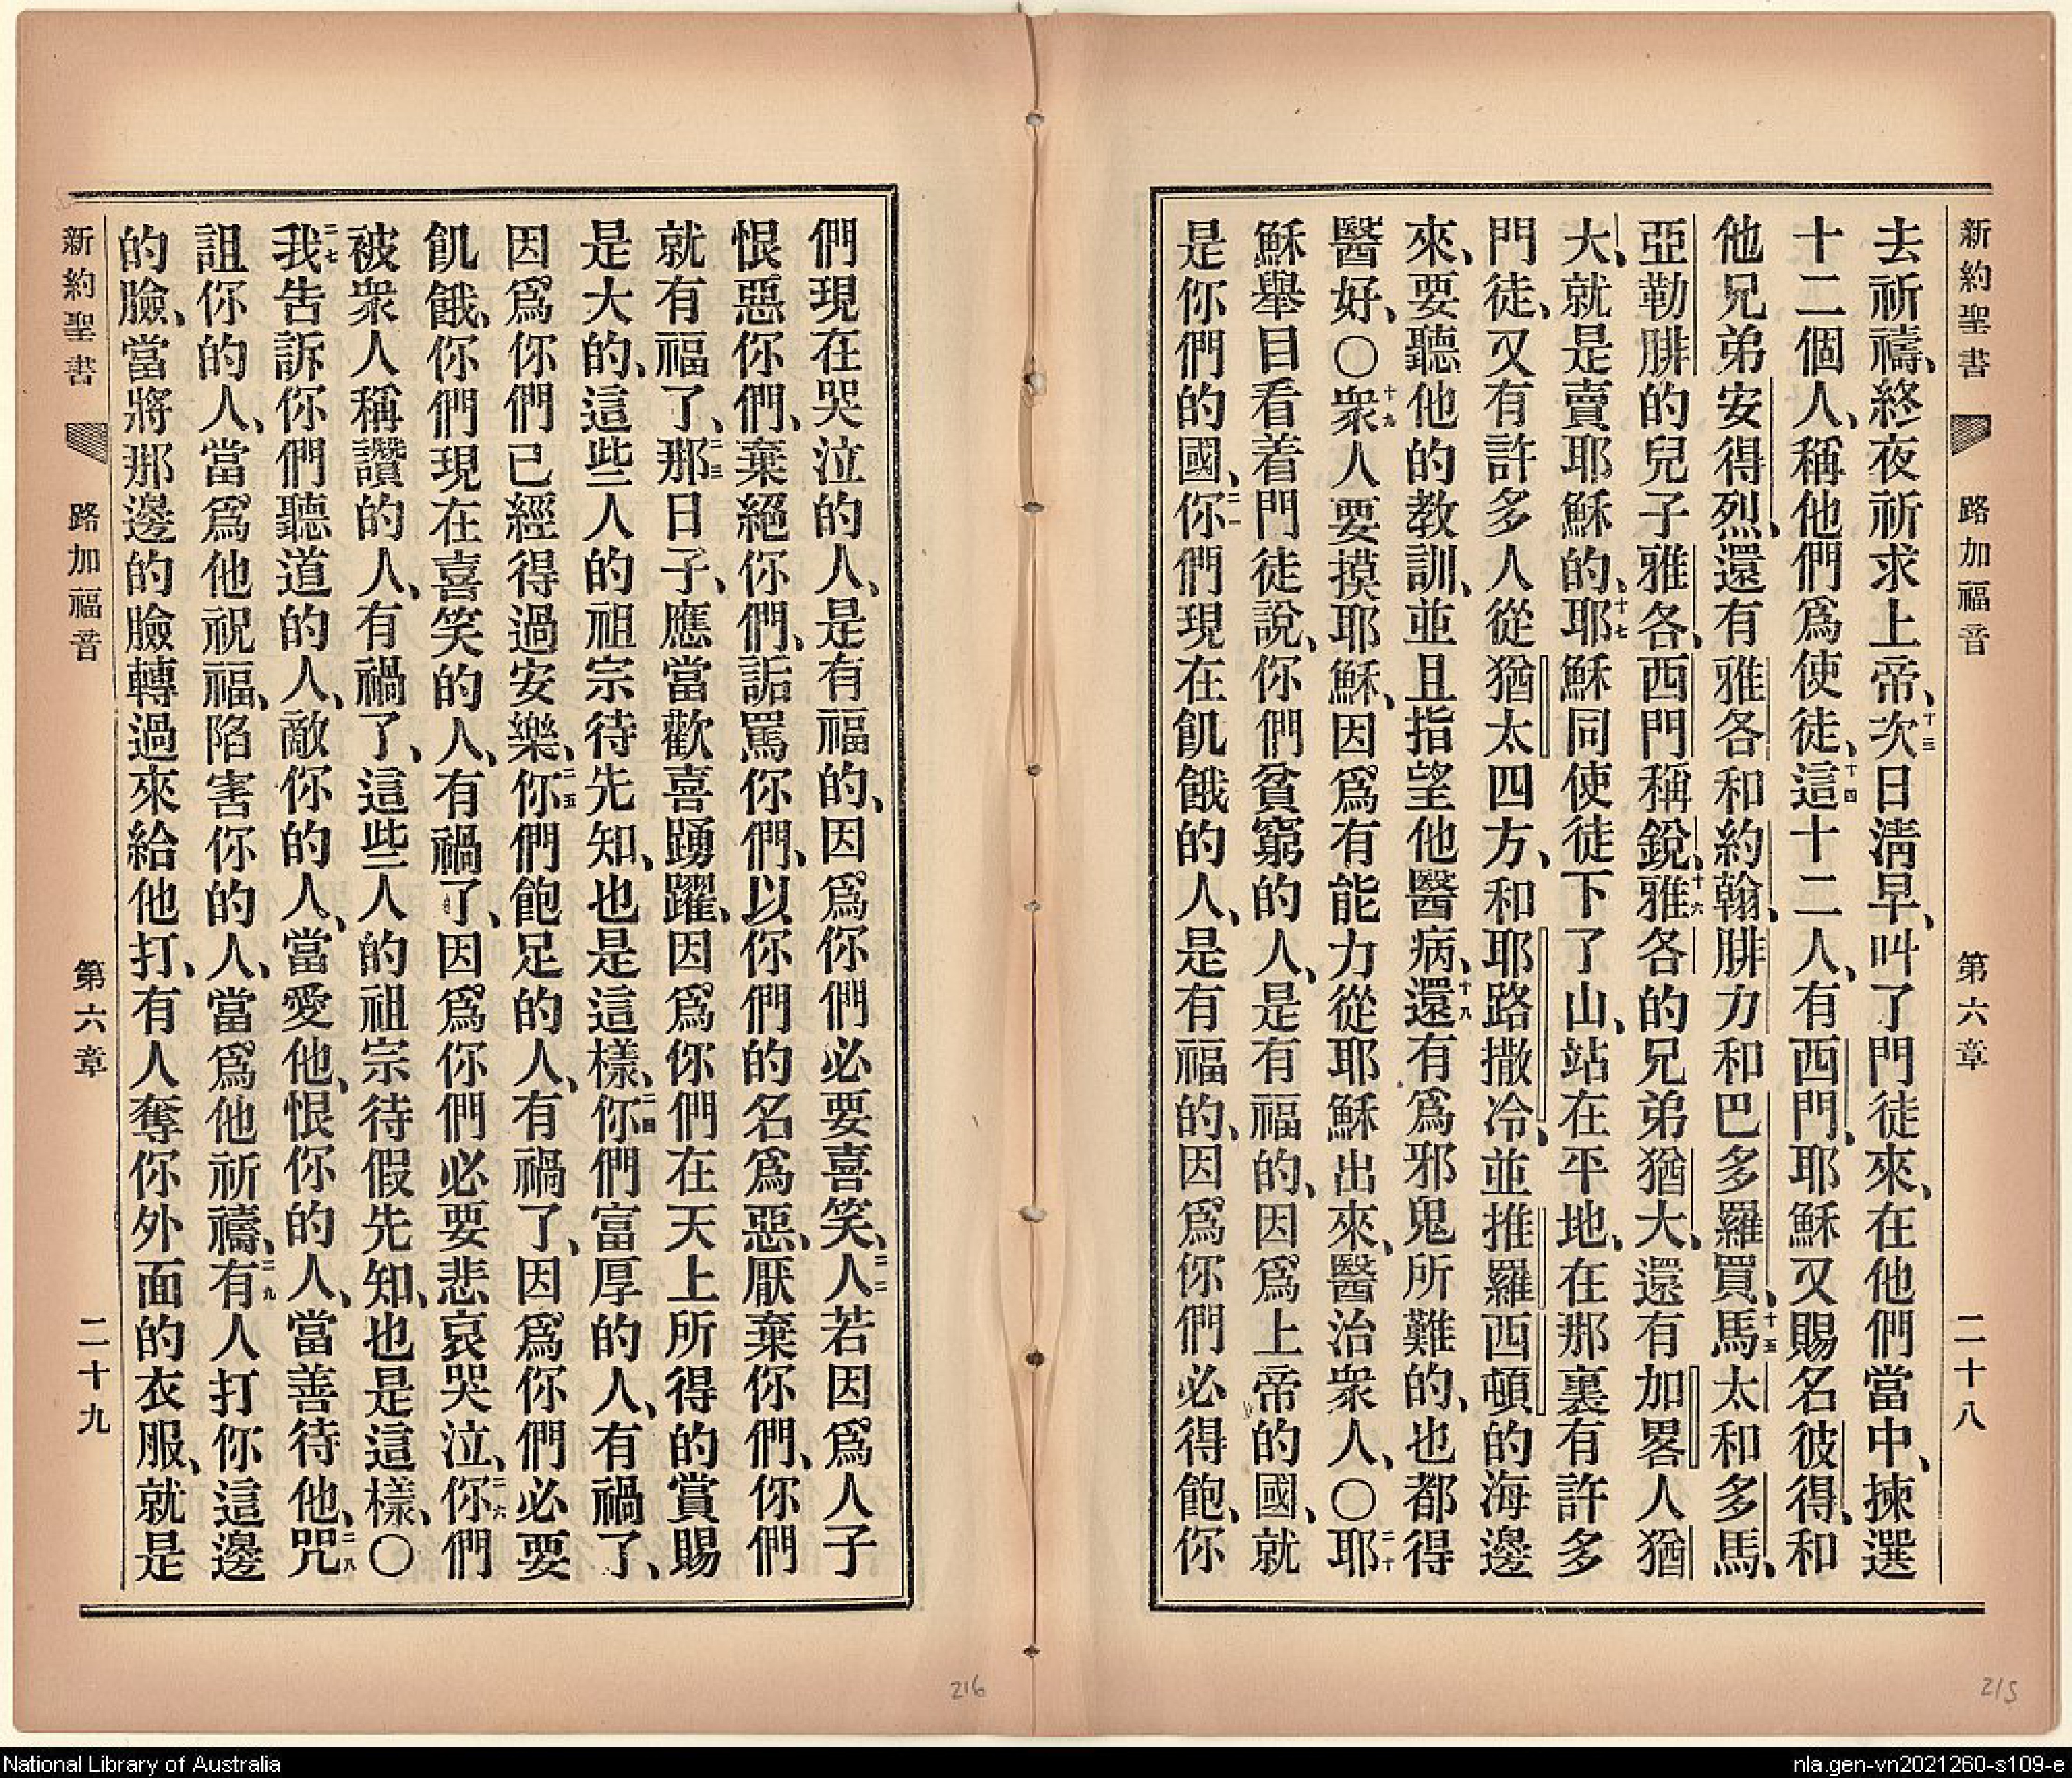 新約聖書 路加福音 第六章 二十八
去祈禱、終夜祈求上帝、十三次日淸早、叫了門徒來、在他們當中、揀選
十二個人、稱他們爲使徒、十四這十二人、有西門、耶穌又賜名彼得、和
他兄弟安得烈、還有雅各和約翰、腓力和巴多羅買、十五馬太和多馬、
亞勒腓的兒子雅各、西門稱銳、十六雅各的兄弟猶大、還有加畧人猶
大、就是賣耶穌的、十七耶穌同使徒下了山、站在平地、在那裏有許多
門徒、又有許多人從猶太四方、和耶路撒冷、並推羅西頓的海邊
來、要聽他的教訓、並且指望他醫病、十八還有爲邪鬼所難的、也都得
醫好、〇十九衆人要摸耶穌、因爲有能力從耶穌出來、醫治衆人、〇二十耶
穌舉目看着門徒說、你們貧窮的人、是有福的、因爲上帝的國、就
是你們的國、二一你們現在飢餓的人、是有福的、因爲你們必得飽、你
們現在哭泣的人、是有福的、因爲你們必要喜笑、二二人若因爲人子
恨惡你們、棄絕你們、詬罵你們、以你們的名爲惡、厭棄你們、你們
就有福了、二三那日子、應當歡喜踴躍、因爲你們在天上所得的賞賜
是大的、這些人的祖宗待先知、也是這樣、二四你們富厚的人、有禍了、
因爲你們已經得過安樂、二五你們飽足的人、有禍了、因爲你們必要
飢餓、你們現在喜笑的人、有禍了、因爲你們必要悲哀哭泣、二六你們
被衆人稱讚的人、有禍了、這些人的祖宗待假先知、也是這樣、〇
二七我告訴你們聽道的人、敵你的人、當愛他、恨你的人、當善待他、二八咒
詛你的人、當爲他祝福、陷害你的人、當爲他祈禱、二九有人打你這邊
的臉、當將那邊的臉轉過來給他打、有人奪你外面的衣服、就是
新約聖書 路加福音 第六章 二十九
216
215
National Library of Australia
nla.gen-vn2021260-s109-e